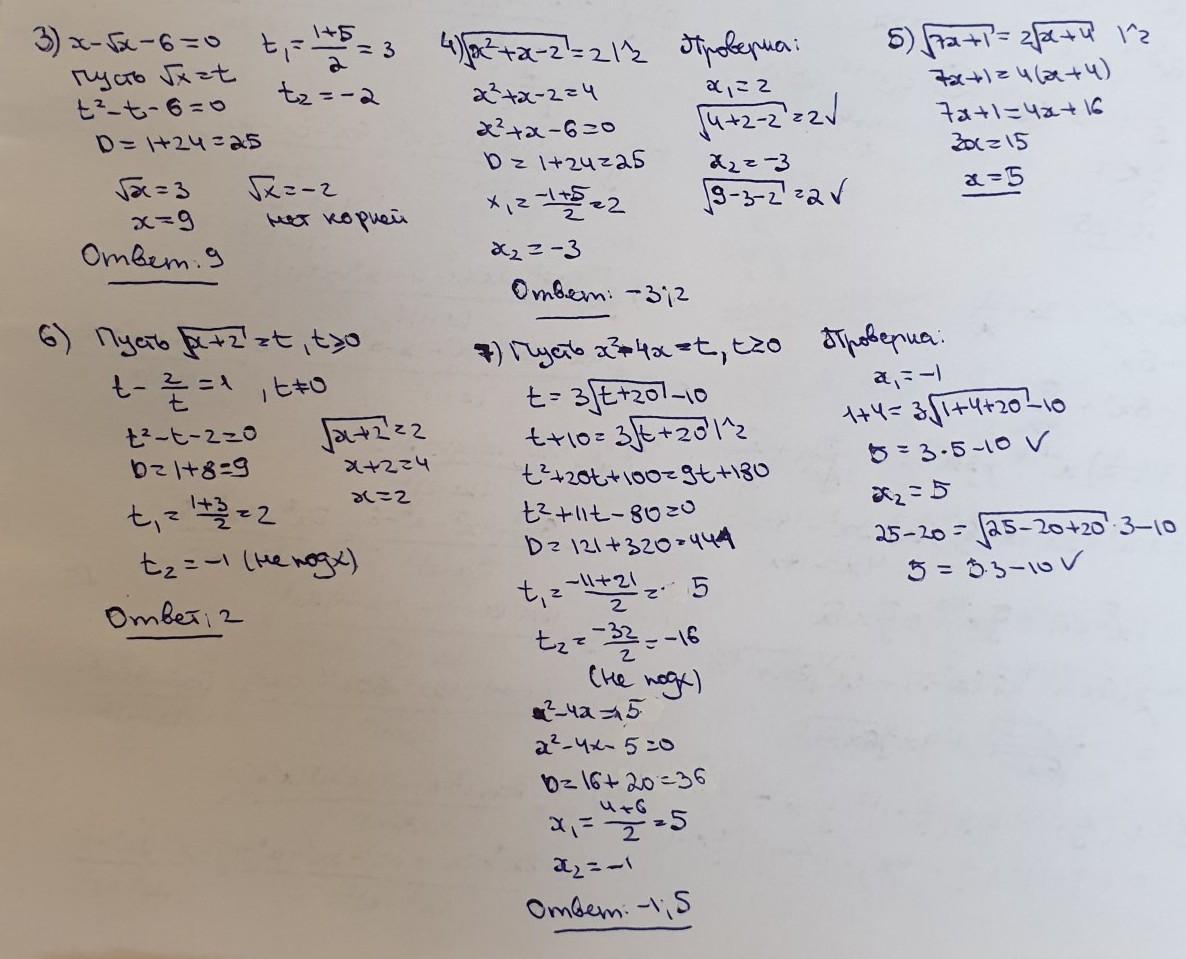 3) x-√x-6=0
Пусть √x=t
t²-t-6=0
D=1+24=25
t₁=(1+5)/2=3
t₂=-2
√x=3
x=9
√x=-2
нет корней
Ответ: 9
4) √(x²+x-2)=2 |^2
x²+x-2=4
x²+x-6=0
D=1+24=25
x₁=(-1+5)/2=2
x₂=-3
Проверка:
x₁=2
√(4+2-2)=2✓
x₂=-3
√(9-3-2)=2✓
Ответ: -3;2
5) √(7x+1)=2√(x+4) |^2
7x+1=4(x+4)
7x+1=4x+16
3x=15
x=5
6) Пусть √(x+2)=t, t≥0
t-2/t=1, t≠0
t²-t-2=0
D=1+8=9
t₁=(1+3)/2=2
t₂=-1 (не подх)
√(x+2)=2
x+2=4
x=2
Ответ: 2
7) Пусть x²-4x=t, t≥0
t=3√(t+20)-10
t+10=3√(t+20) |^2
t²+20t+100=9t+180
t²+11t-80=0
D=121+320=441
t₁=(-11+21)/2=5
t₂=-32/2=-16
(не подх)
x²-4x=5
x²-4x-5=0
D=16+20=36
x₁=(4+6)/2=5
x₂=-1
Ответ: -1;5
Проверка:
x₁=-1
1+4=3√(1+4+20)-10
5=3·5-10✓
x₂=5
25-20=√(25-20+20)·3-10
5=5·3-10✓